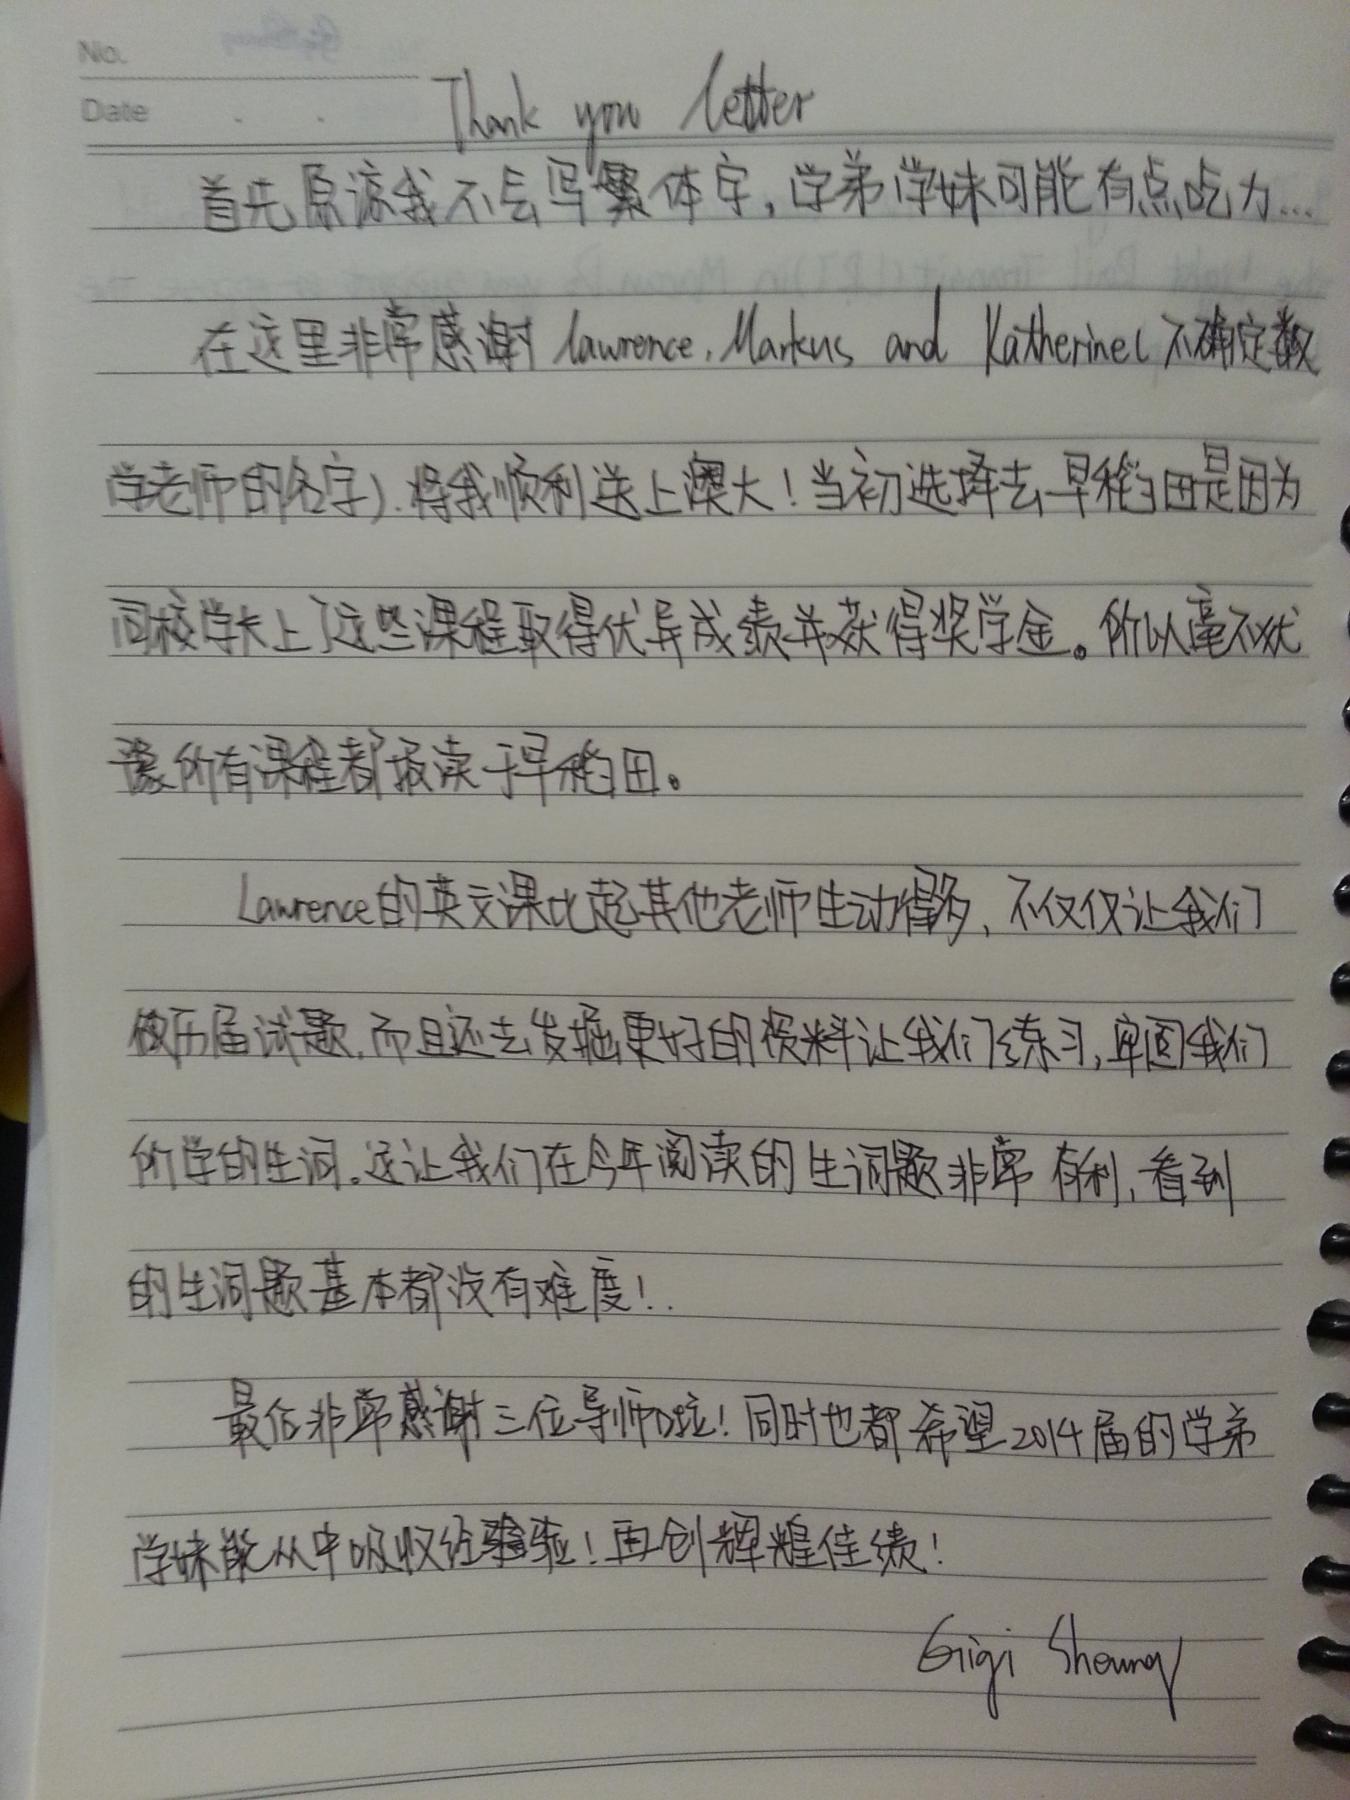 No.
Date
Thank you letter
首先原谅我不会写繁体字，学弟学妹可能有点吃力...
在这里非常感谢 Lawrence, Markus and Katherine(不确定数
学老师的名字).将我顺利送上澳大！当初选择去早稻田是因为
同校学长上了这些课程取得优异成绩并获得奖学金。所以毫不犹
豫所有课程都报读于早稻田。
Lawrence的英文课比起其他老师生动得多，不仅仅让我们
做历届试题，而且还去发掘更好的资料让我们练习，牢固我们
所学的生词。这让我们在今年阅读的生词题非常有利，看到
的生词题基本都没有难度！.
最后非常感谢三位导师啦！同时也都希望2014届的学弟
学妹能从中吸收经验！再创辉煌佳绩！
Gigi